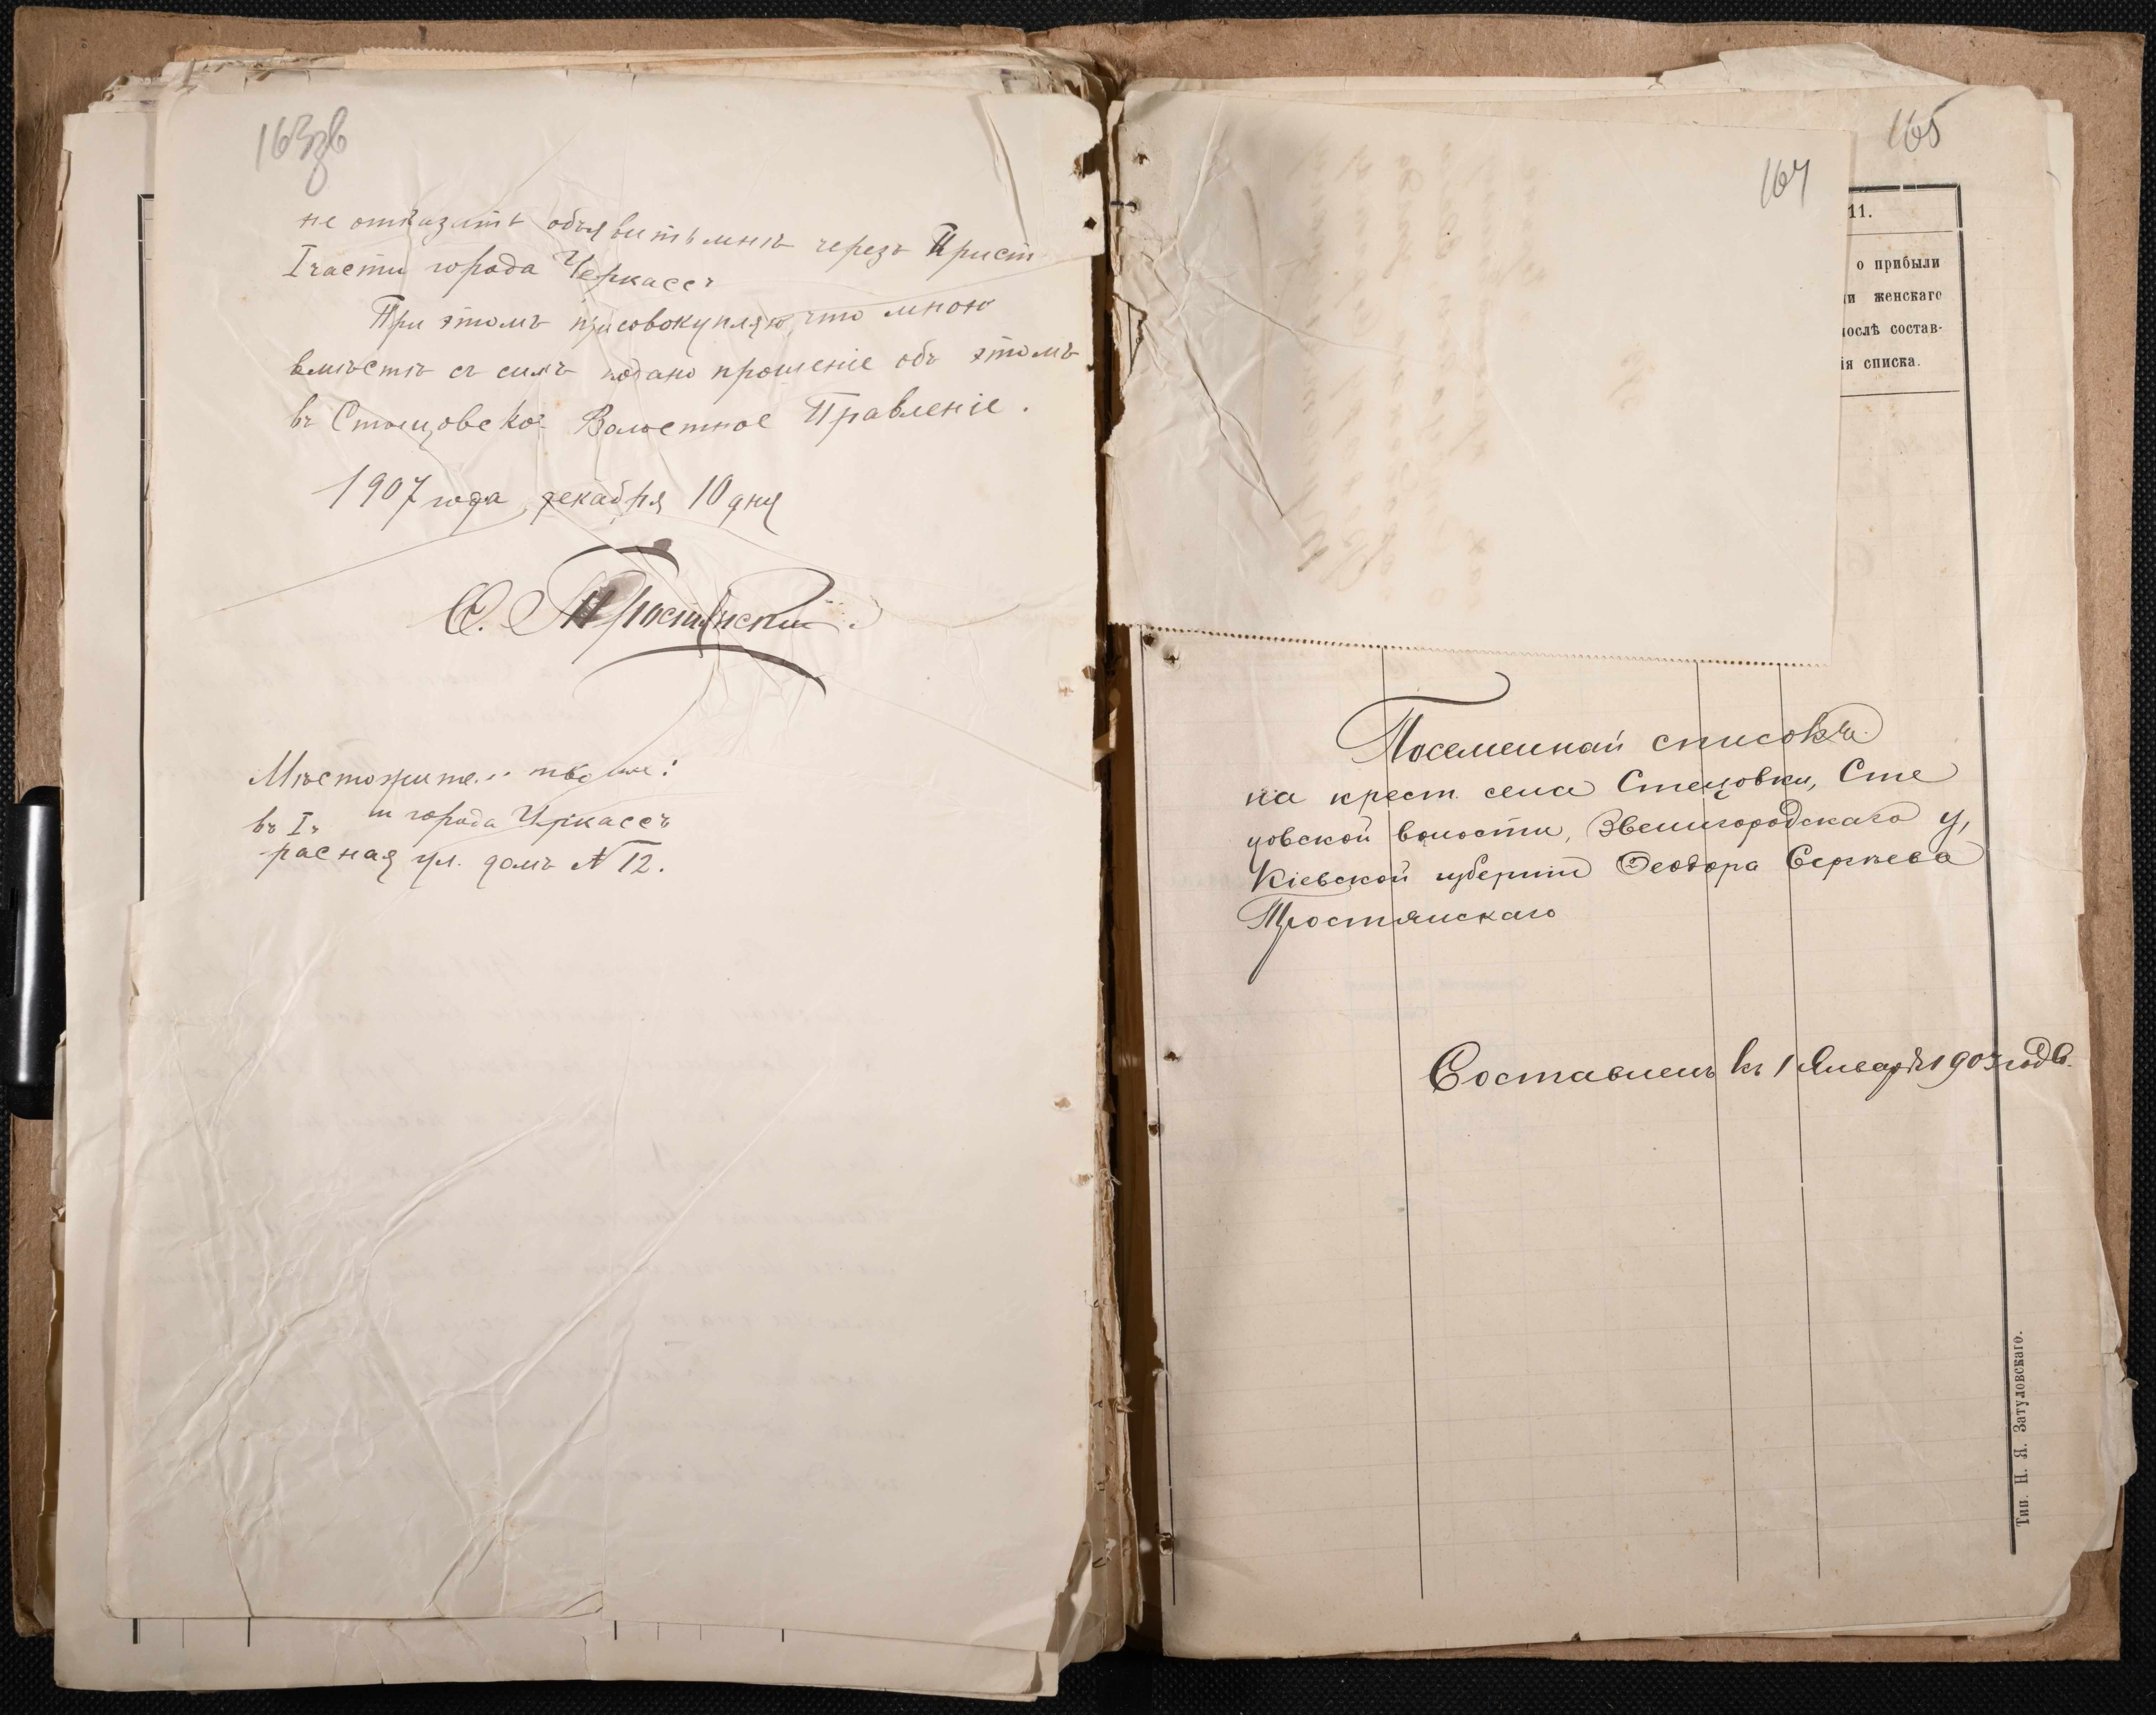 163об
не отказать объявить мнѣ черезъ Прист
I части города Черкассъ
При этомъ присовокупляю, что мною
вмѣстѣ съ симъ подано прошеніе объ этомъ
въ Стецовское Волостное Правленіе.
1907 года, декабря 10 дня
Ѳ. Тростянскій.
Мѣстожите
въ I ч города Черкассъ
расная ул. домъ № 12.
164
165
11.
о прибыли
и женскаго
послѣ состав-
ія списка.
Посемейный списокъ
на крест. села Стецовки, Сте
цовской волости, Звенигородскаго у,
Кіевской губерніи Ѳеодора Сергѣева
Тростянскаго
Составленъ къ 1 Января 1907 года.
Тип. Н. Я. Затуловскаго.